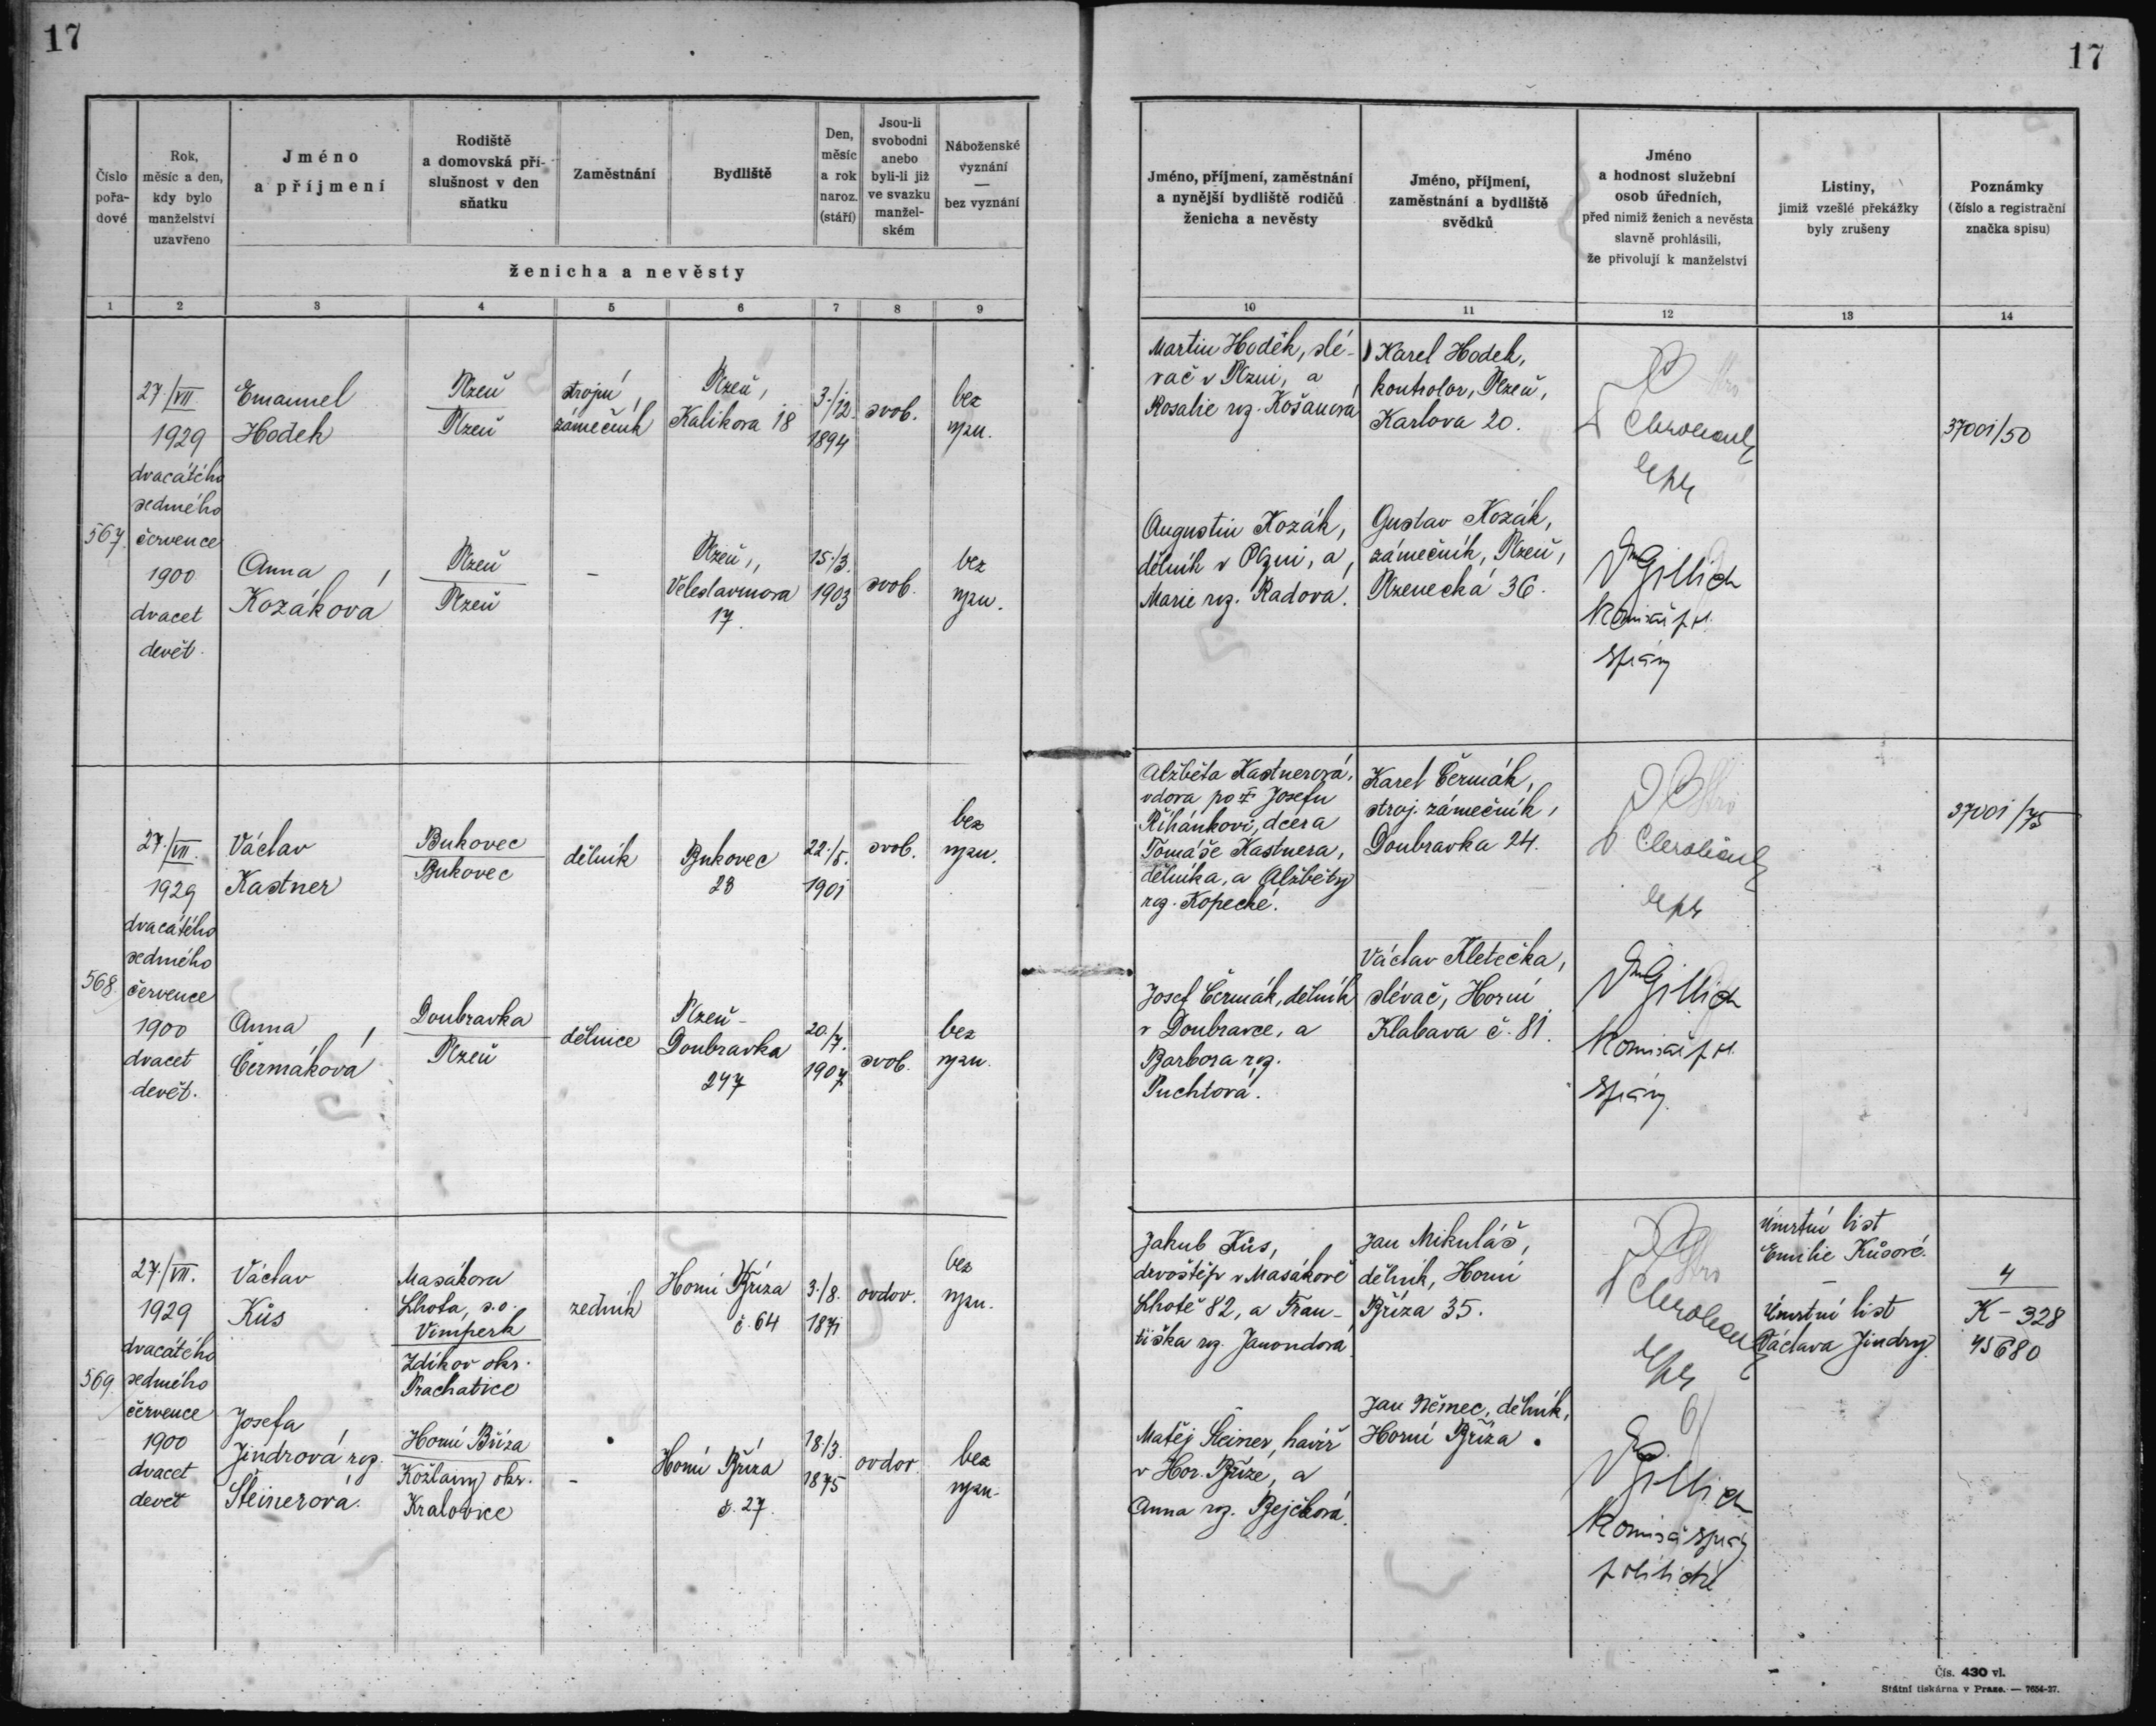 17
17
Číslo
pořa-
dové
Rok,
měsíc a den,
kdy bylo
manželství
uzavřeno
Jméno
a příjmení
Rodiště
a domovská pří-
slušnost v den
sňatku
Zaměstnání
Bydliště
Den,
měsíc
a rok
naroz.
(stáří)
Jsou-li
svobodni
anebo
byli-li již
ve svazku
manžel-
ském
Náboženské
vyznání
—
bez vyznání
ženicha a nevěsty
Jméno, příjmení, zaměstnání
a nynější bydliště rodičů
ženicha a nevěsty
Jméno, příjmení,
zaměstnání a bydliště
svědků
Jméno
a hodnost služební
osob úředních,
před nimiž ženich a nevěsta
slavně prohlásili,
že přivolují k manželství
Listiny,
jimiž vzešlé překážky
byly zrušeny
Poznámky
(číslo a registrační
značka spisu)
1 2 3 4 5 6 7 8 9 10 11 12 13 14
567.
27./VII.
1929
dvacátého
sedmého
července
1900
dvacet
devět.
Emanuel
Hodek
Plzeň
Plzeň
strojní
zámečník
Plzeň,
Kalikova 18
3./12.
1894
svob.
bez
vyzn.
Martin Hodek, slé-
vač v Plzni, a
Rosalie roz. Košanová
Karel Hodek,
kontrolor, Plzeň,
Karlova 20.
37001/50
Anna
Kozáková
Plzeň
Plzeň
–
Plzeň,
Veleslavínova
17.
15./3.
1903
svob.
bez
vyzn.
Augustin Kozák,
dělník v Plzni, a
Marie roz. Radová.
Gustav Kozák,
zámečník, Plzeň,
Plzenecká 36.
Dr Gillich
Komisař pol.
správy
568.
27./VII.
1929
dvacátého
sedmého
července
1900
dvacet
devět.
Václav
Kastner
Bukovec
Bukovec
dělník
Bukovec
28
22./8.
1901
svob.
bez
vyzn.
Alžběta Kastnerová,
vdova po Josefu
Říhánkovi, dcera
Tomáše Kastnera,
dělníka, a Alžběty
roz. Kopecké.
Karel Čermák,
stroj. zámečník,
Doubravka 24.
37001/75
Anna
Čermáková
Doubravka
Plzeň
dělnice
Plzeň-
Doubravka
247
20./7.
1907
svob.
bez
vyzn.
Josef Čermák, dělník
v Doubravce, a
Barbora roz.
Puchtová.
Václav Kletečka,
slévač, Horní
Klabava č. 81.
Dr Gillich
Komisař pol.
správy
569.
27./VII.
1929
dvacátého
sedmého
července
1900
dvacet
devět
Václav
Kůs
Masákova
Lhota, s.o.
Vimperk
Zdíkov okr.
Prachatice
zedník
Horní Bříza
č. 64
3./8.
1871
ovdov.
bez
vyzn.
Jakub Kůs,
drvoštěp v Masákově
Lhotě 82, a Fran-
tiška roz. Janondová
Jan Mikuláš,
dělník, Horní
Bříza 35.
Úmrtní list
Emilie Kůsové.
–
Úmrtní list
Václava Jindry.
4
K-328
45680
Josefa
Jindrová roz.
Šteinerová.
Horní Bříza
Kožlany okr.
Kralovice
–
Horní Bříza
č. 27.
18./3.
1875
ovdov.
bez
vyzn.
Matěj Šteiner, havíř
v Hor. Bříze, a
Anna roz. Bejčková.
Jan Němec, dělník,
Horní Bříza.
Dr Gillich
Komisař správy
politické
Čís. 430 vl.
Státní tiskárna v Praze. — 7654-27.